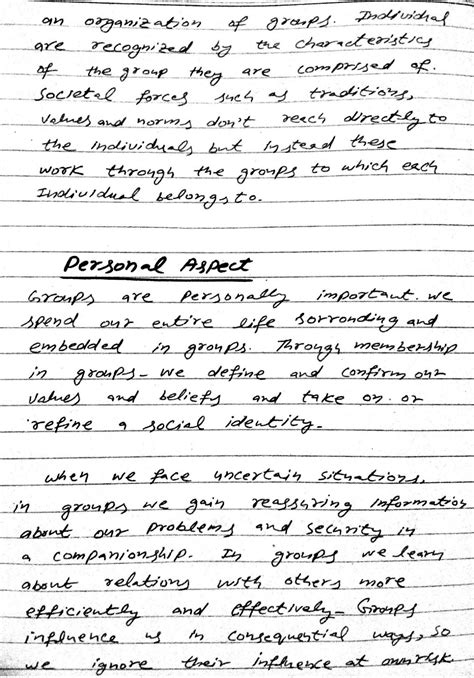 an organization of groups. Individual
are recognized by the characteristics
of the group they are comprised of.
Societal forces such as traditions,
values and norms don't reach directly to
the individuals but instead these
work through the groups to which each
Individual belongs to.
Personal Aspect
Groups are personally important. we
spend our entire life sorronding and
embedded in groups. Through membership
in groups - we define and confirm our
values and beliefs and take on or
refine a social identity.
when we face uncertain situations,
in groups we gain reassuring information
about our problems and security in
a companionship. In groups we learn
about relations with others more
efficiently and effectively - Groups
influence us in consequential ways, so
we ignore their influence at own risk.